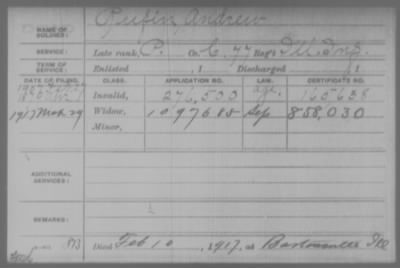 NAME OF SOLDIER: Andrew
SERVICE: Late rank, P. Co. C, 77 Reg't Ill. Inf.
TERM OF SERVICE: Enlisted , 1 Discharged , 1
DATE OF FILING. CLASS. APPLICATION NO. LAW. CERTIFICATE NO.
Invalid, 276,533 age. 165638
1917 Mar 29 Widow, 1097688 Sep 858,030
Minor,
ADDITIONAL SERVICES:
REMARKS:
Died Feb 10, 1917, at Bartonville Ill